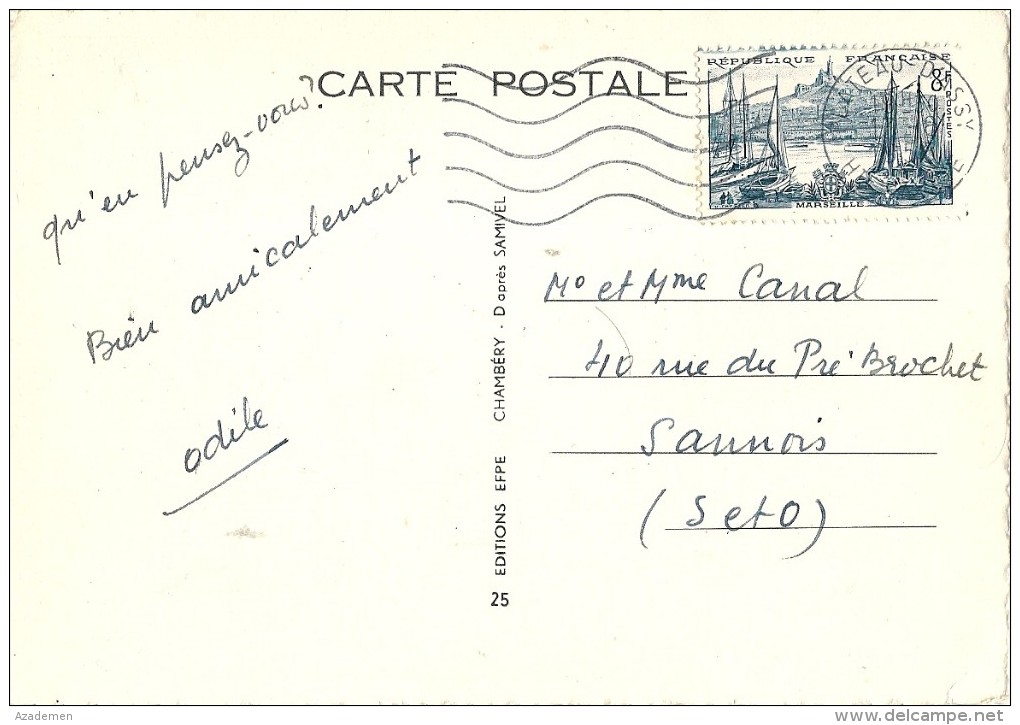 CARTE POSTALE
RÉPUBLIQUE FRANÇAISE
8F
POSTES
MARSEILLE
PLATEAU-D'ASSY
HTE
qu'en pensez-vous?
Bien amicalement
odile
EDITIONS EFPE CHAMBÉRY - D'après SAMIVEL
25
Mº et Mme Canal
40 rue du Pré Brochet
Sannois
(S et O)
Azademen
www.delcampe.net